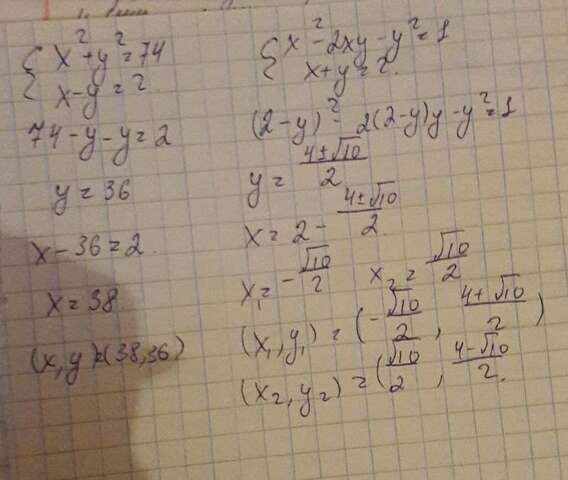 { x² + y² = 74
x - y = 2
74 - y - y = 2
y = 36
x - 36 = 2
x = 38
(x, y) = (38, 36)
{ x² - 2xy - y² = 1
x + y = 2.
(2 - y)² - 2(2 - y)y - y² = 1
y = (4 ± √10)/2
x = 2 - (4 ± √10)/2.
x₁ = -√10/2 x₂ = √10/2
(x₁, y₁) = (-√10/2, (4 + √10)/2)
(x₂, y₂) = (√10/2, (4 - √10)/2.